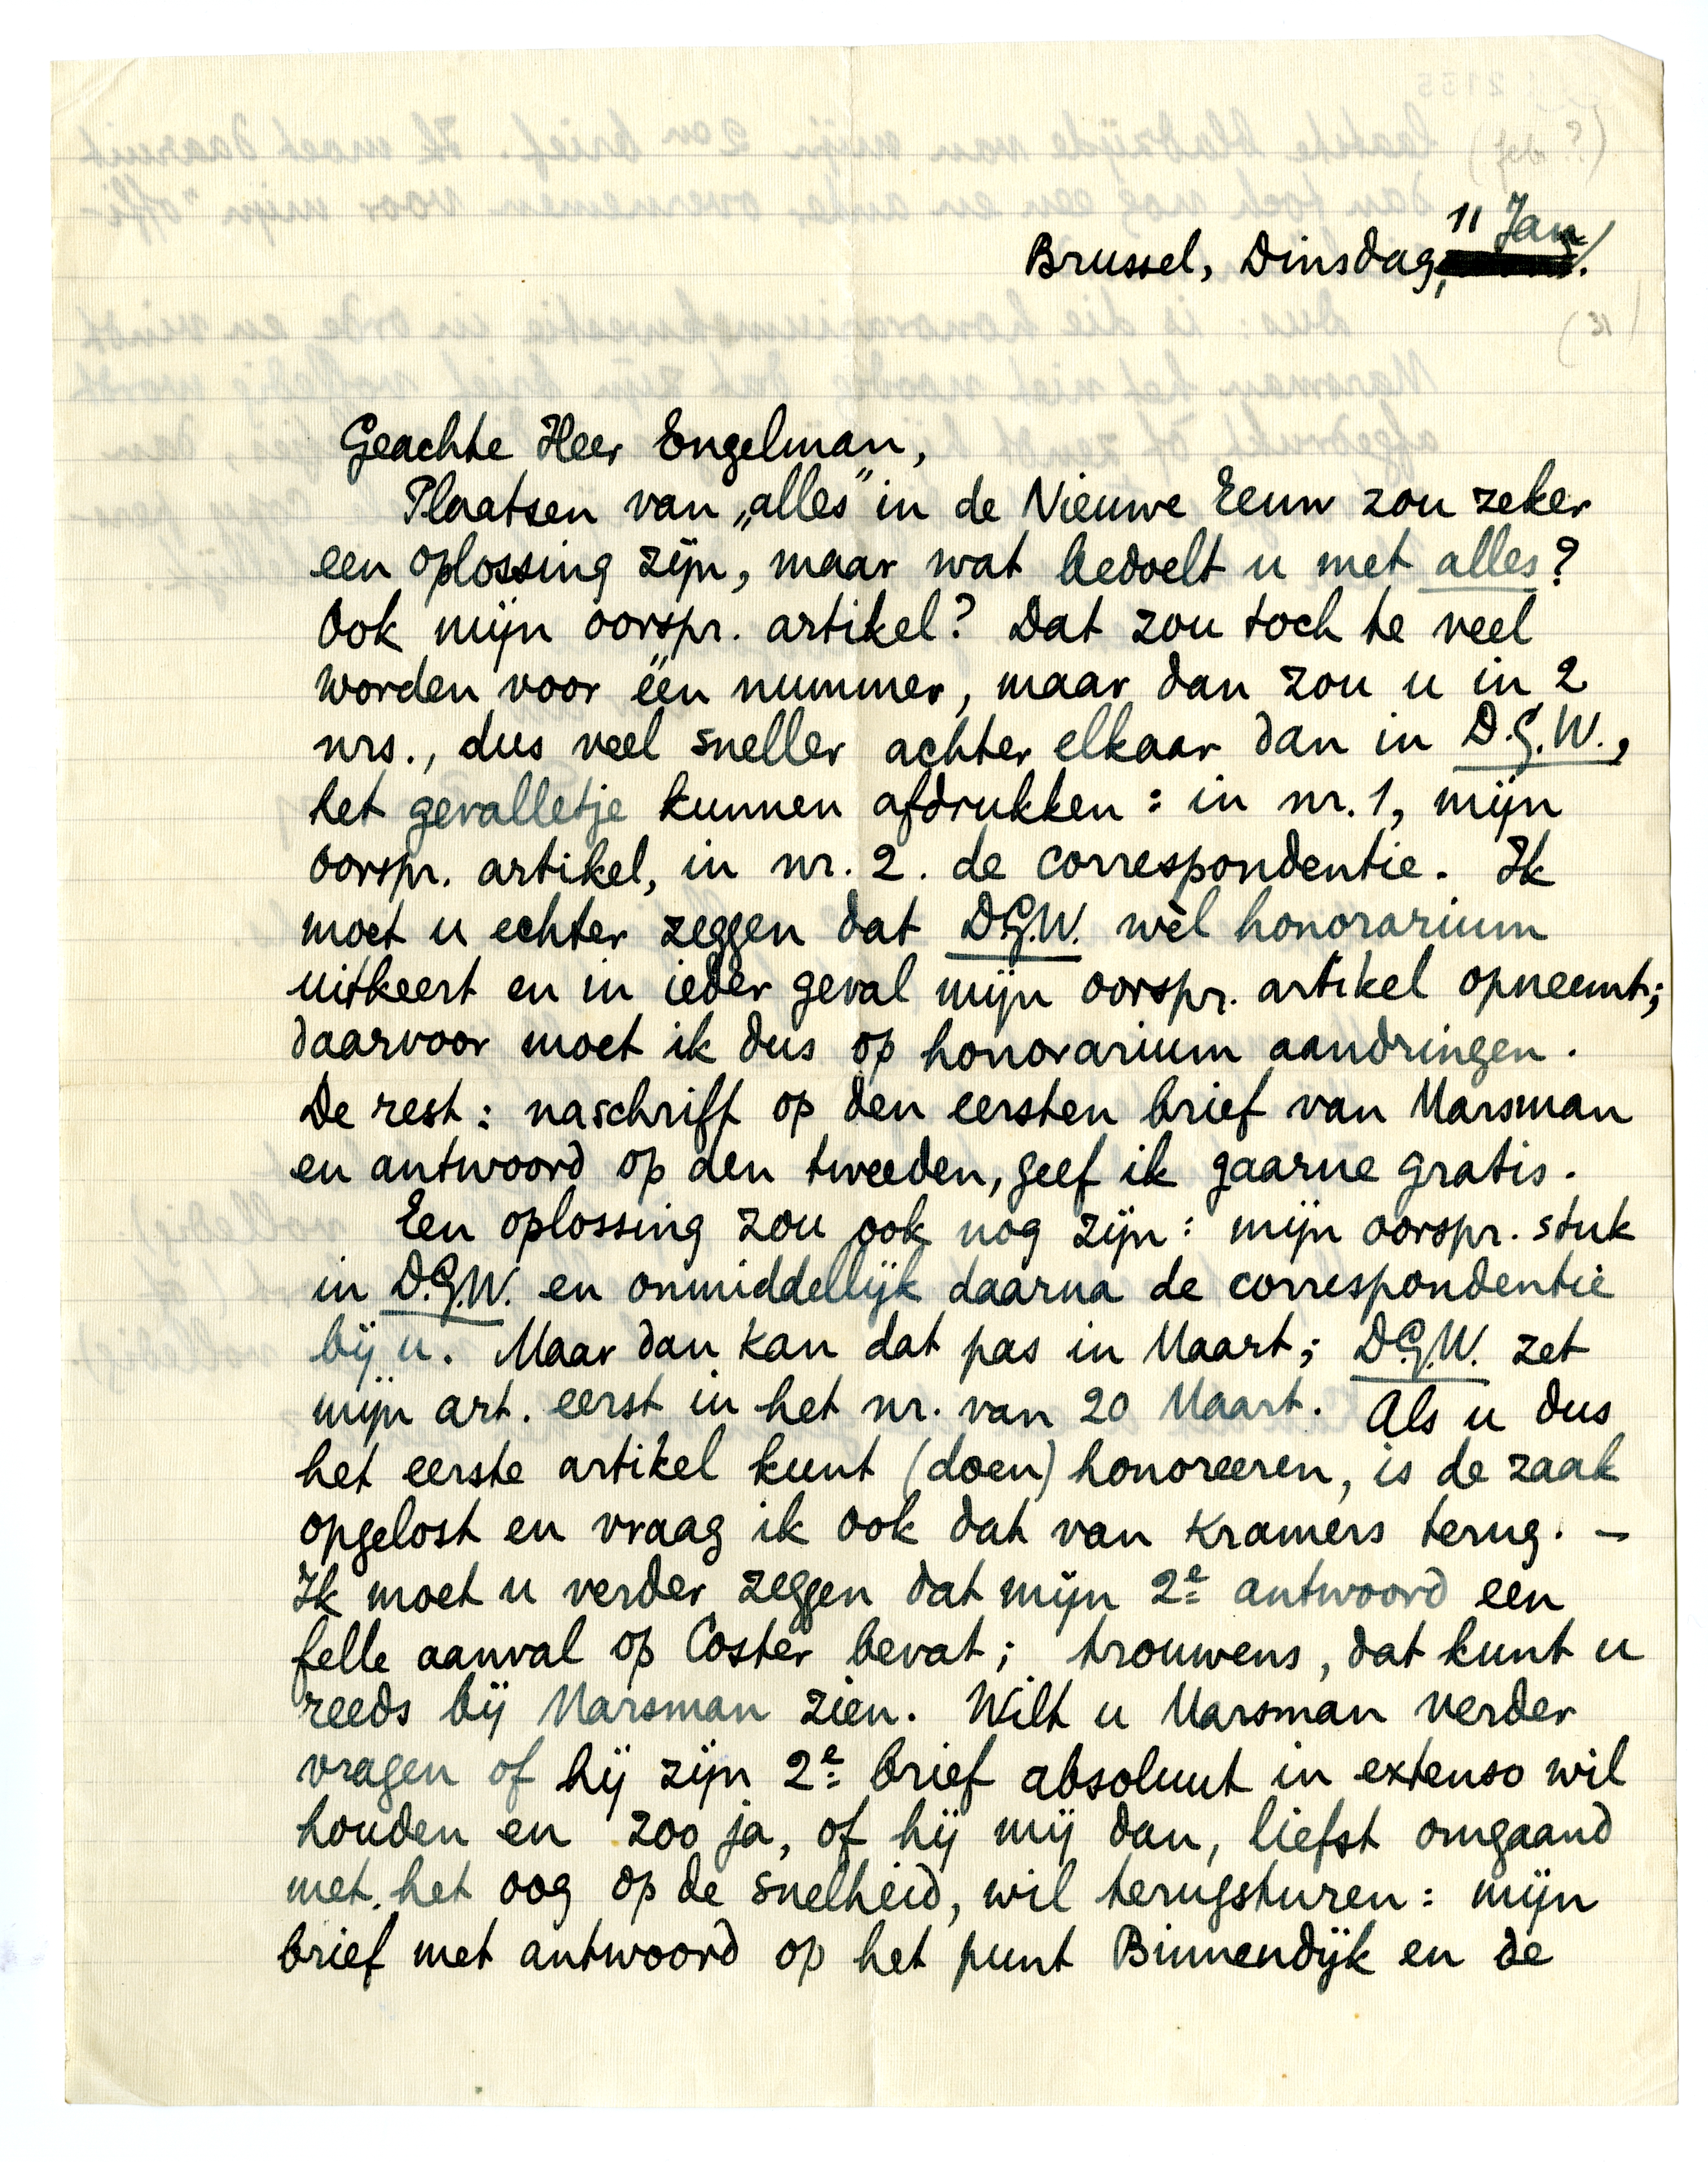 (feb ?)
11 Jan
Brussel, Dinsdag,
(31)
Geachte Heer Engelman,
Plaatsen van „alles" in de Nieuwe Eeuw zou zeker
een oplossing zijn, maar wat bedoelt u met alles?
Ook mijn oorspr. artikel? Dat zou toch te veel
worden voor één nummer, maar dan zou u in 2
nrs., dus veel sneller achter elkaar dan in D.G.W.,
het gevalletje kunnen afdrukken: in nr. 1, mijn
oorspr. artikel, in nr. 2. de correspondentie. Ik
moet u echter zeggen dat D.G.W. wèl honorarium
uitkeert en in ieder geval mijn oorspr. artikel opneemt;
daarvoor moet ik dus op honorarium aandringen.
De rest: naschrift op den eersten brief van Marsman
en antwoord op den tweeden, geef ik gaarne gratis.
Een oplossing zou ook nog zijn: mijn oorspr. stuk
in D.G.W. en onmiddellijk daarna de correspondentie
bij u. Maar dan kan dat pas in Maart; D.G.W. zet
mijn art. eerst in het nr. van 20 Maart. Als u dus
het eerste artikel kunt (doen) honoreeren, is de zaak
opgelost en vraag ik ook dat van Kramers terug. —
Ik moet u verder zeggen dat mijn 2e antwoord een
felle aanval op Coster bevat; trouwens, dat kunt u
reeds bij Marsman zien. Wilt u Marsman verder
vragen of hij zijn 2e brief absoluut in extenso wil
houden en zoo ja, of hij mij dan, liefst omgaand
met het oog op de snelheid, wil terugsturen: mijn
brief met antwoord op het punt Binnendijk en de